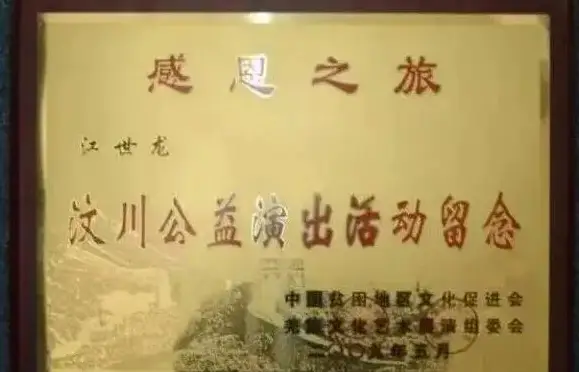 感恩之旅
江世龙
汶川公益演出活动留念
中国贫困地区文化促进会
羌族文化艺术展演组委会
二〇〇九年五月